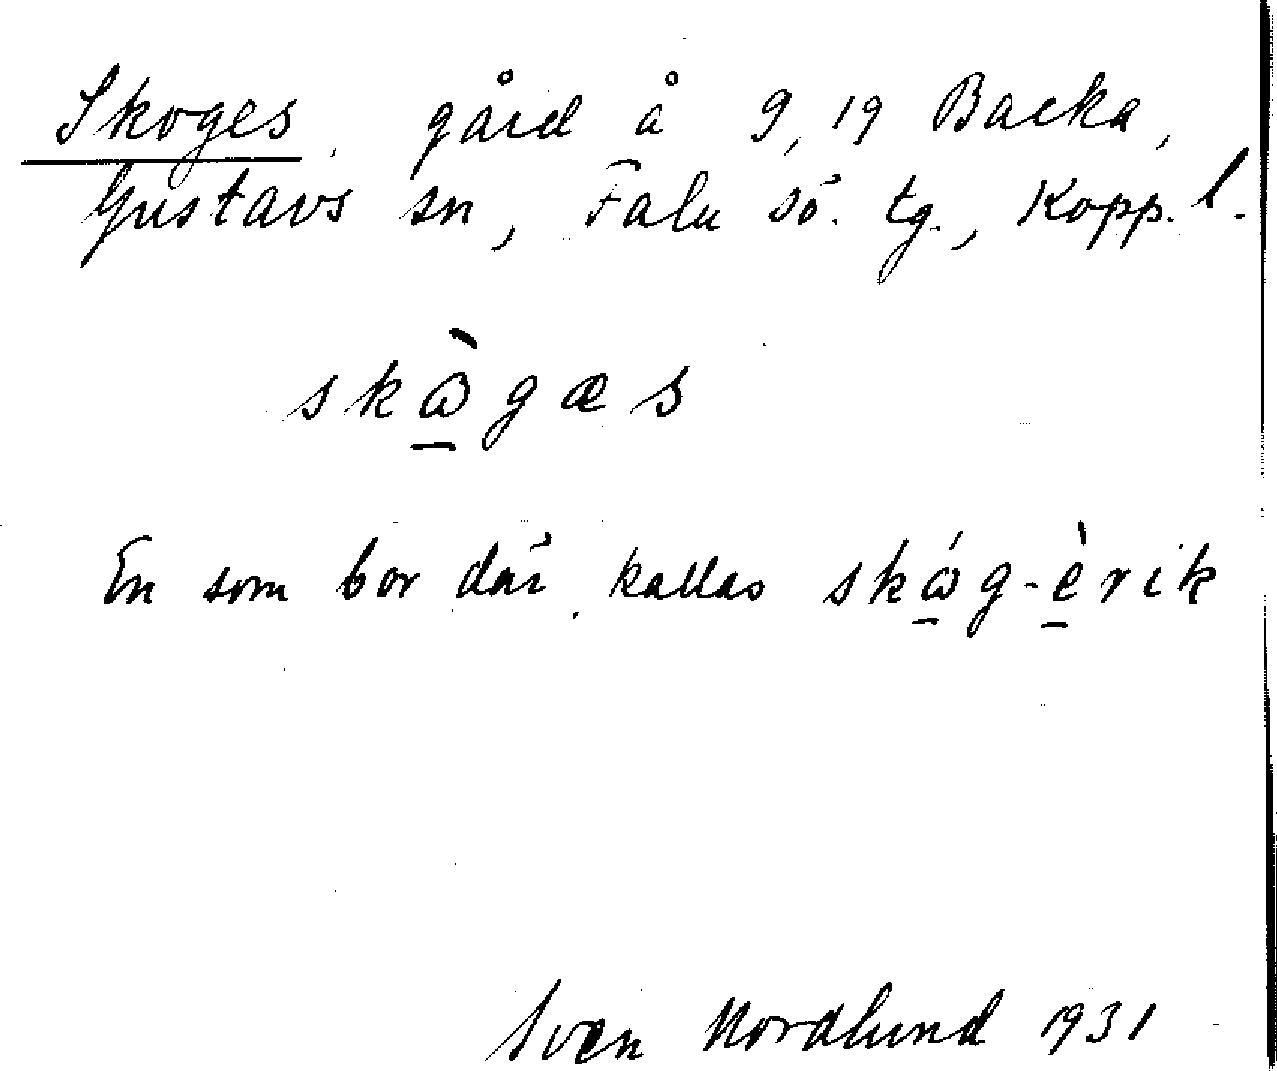 Skoges, gård å 9,19 Backa,
Gustavs sn, Falu sö. tg., Kopp. l.
skɷ̠̀gæs
En som bor där kallas skɷ̠́g-è̠rik
Sven Nordlund 1931